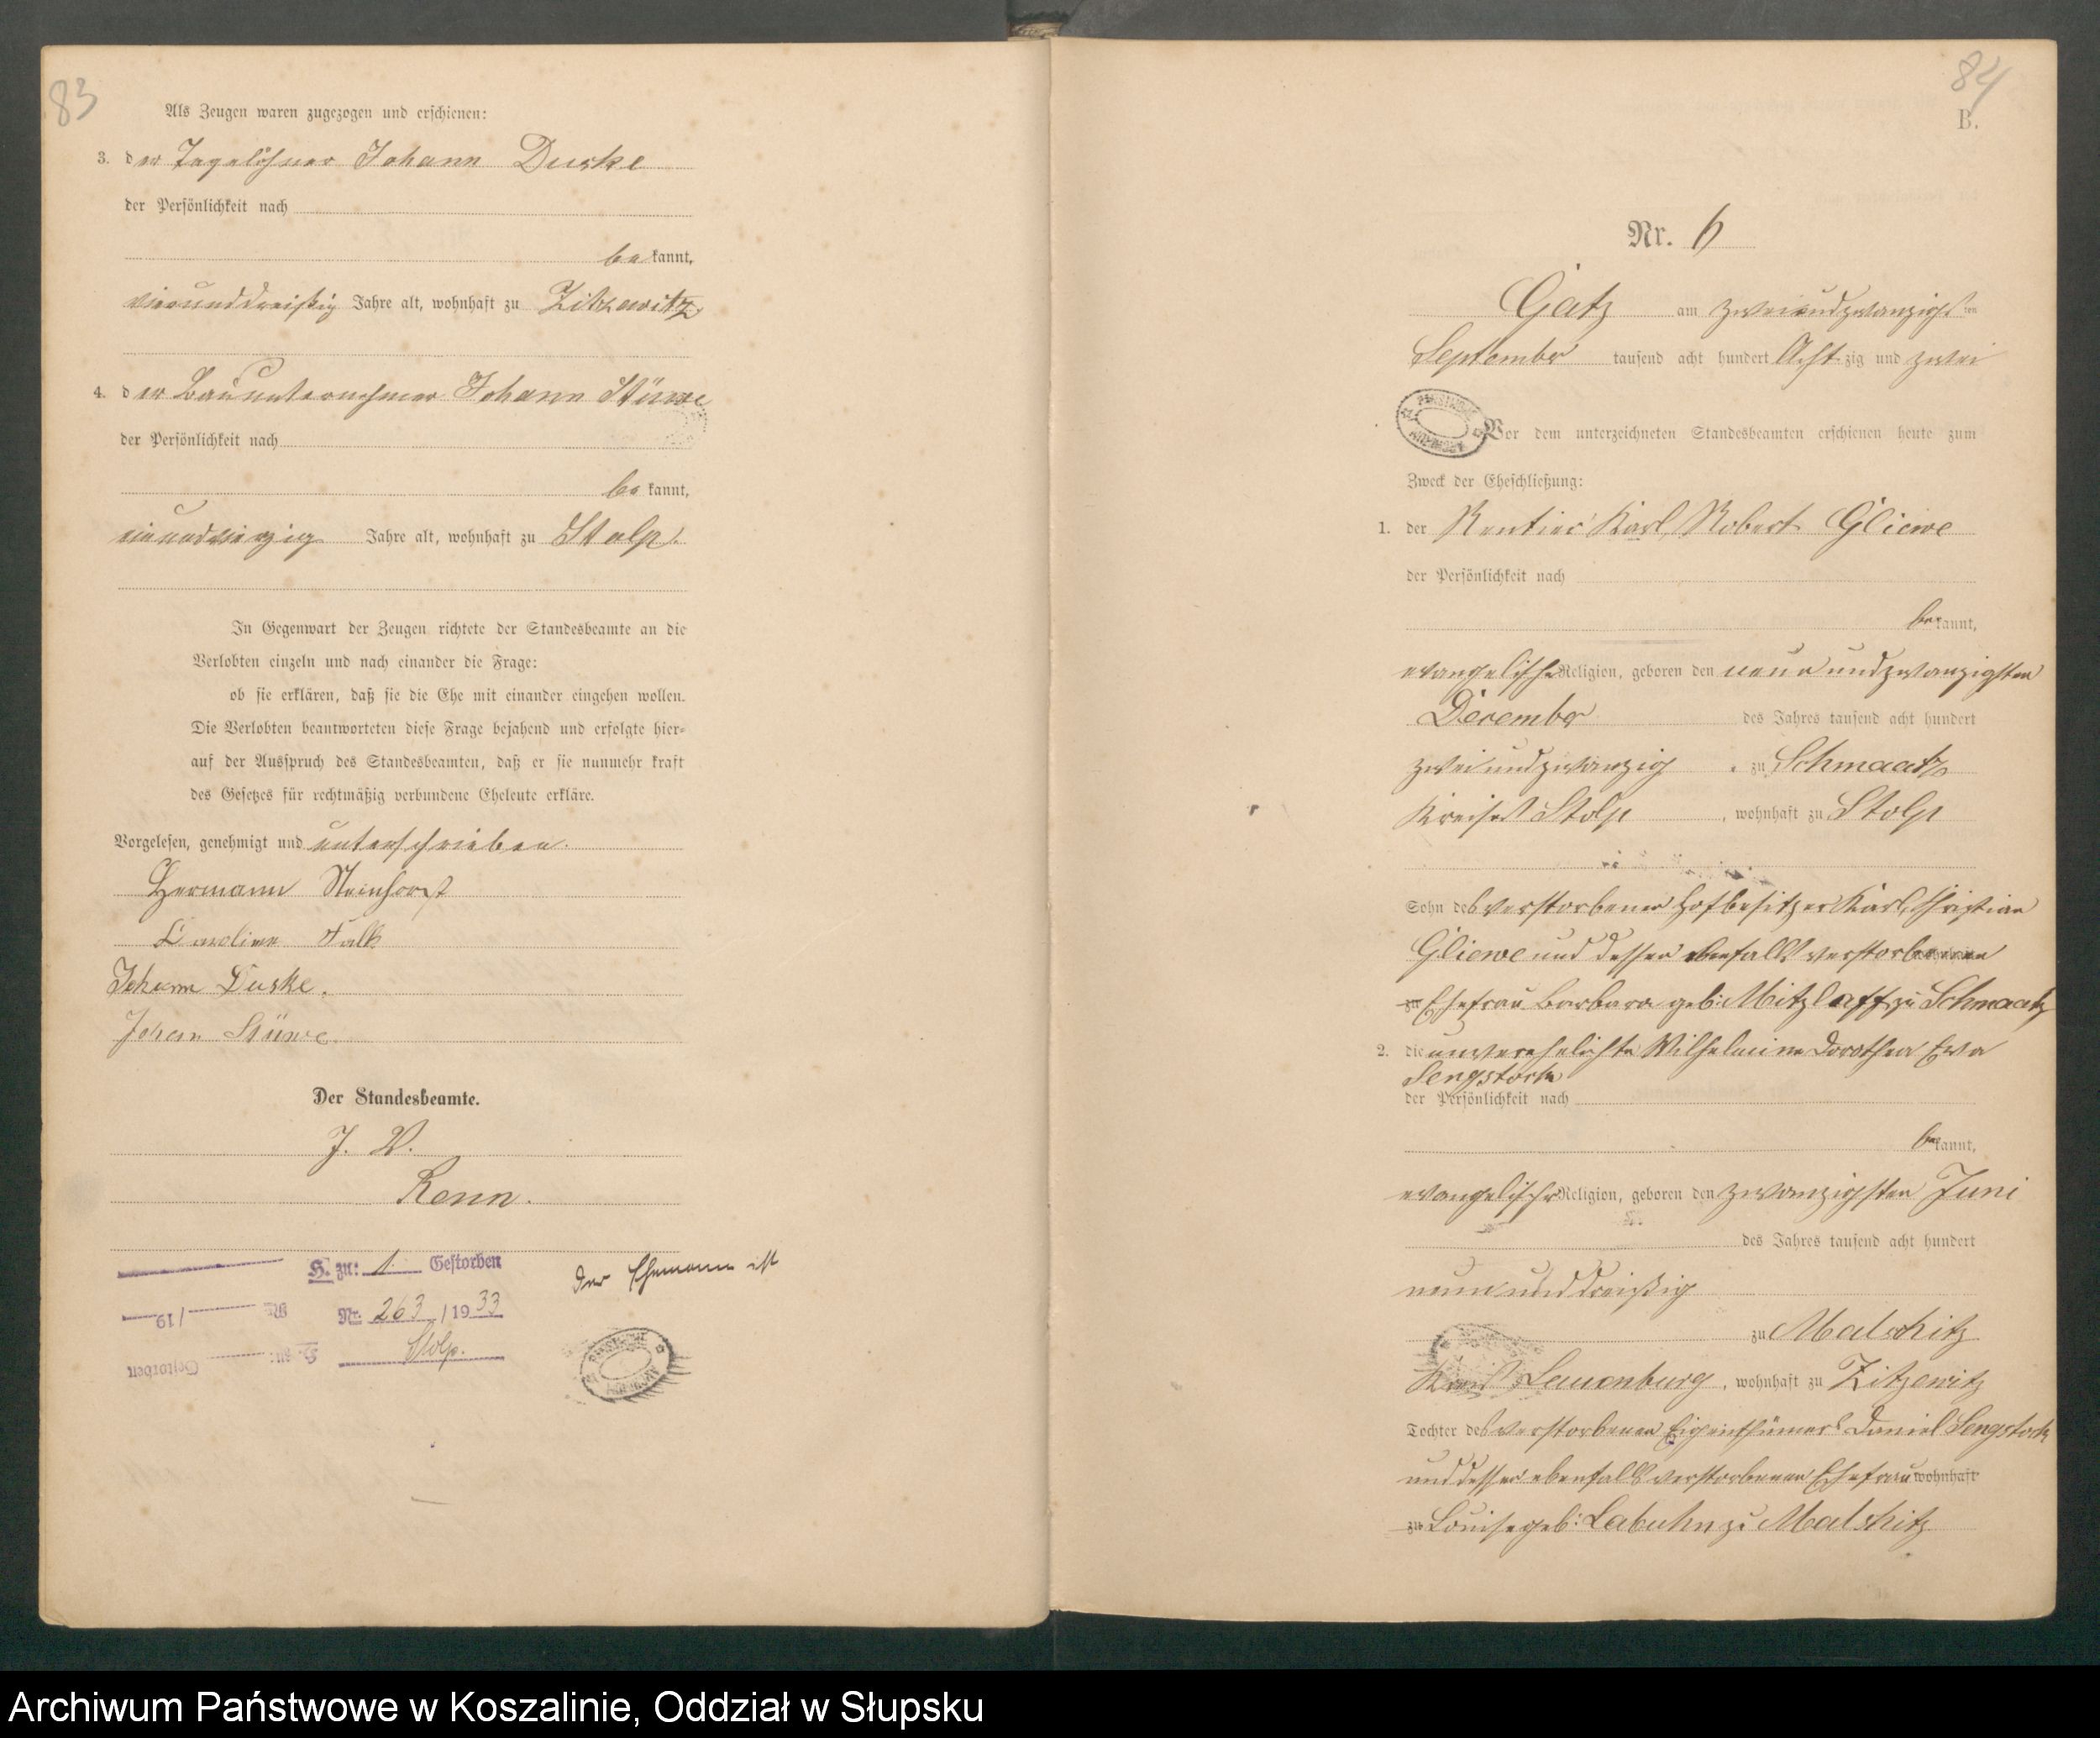 83
Als Zeugen waren zugezogen und erschienen:
3. der Tagelöhner Johann Duske
der Persönlichkeit nach
be kannt,
vierunddreißig Jahre alt, wohnhaft zu Zitzewitz,
4. der Bauunternehmer Johann Stüwe
der Persönlichkeit nach
be kannt,
Jahre alt, wohnhaft zu Stolp.
In Gegenwart der Zeugen richtete der Standesbeamte an die
Verlobten einzeln und nach einander die Frage:
ob sie erklären, daß sie die Ehe mit einander eingehen wollen.
Die Verlobten beantworteten diese Frage bejahend und erfolgte hier-
auf der Ausspruch des Standesbeamten, daß er sie nunmehr kraft
des Gesetzes für rechtmäßig verbundene Eheleute erkläre.
Vorgelesen, genehmigt und unterschrieben.
Hermann Steinhorst
Caroline Falk
Johann Duske.
Johann Stüwe.
Der Standesbeamte.
J. V.
Renn.
H. zu: 1. Gestorben
Nr. 263 / 1933
Stolp.
Der Ehemann ist
Nr. /19
H. zu: Gestorben
84
B.
Nr. 6
Gatz am zweiundzwanzigsten
September tausend acht hundert Achtzig und zwei
Vor dem unterzeichneten Standesbeamten erschienen heute zum
Zweck der Eheschließung:
1. der Rentier Karl Robert Gliewe
der Persönlichkeit nach
be kannt,
evangelische Religion, geboren den neunundzwanzigsten
December des Jahres tausend acht hundert
zweiundzwanzig zu Schmaatz
Kreises Stolp, wohnhaft zu Stolp
Sohn des verstorbenen Hofbesitzer Karl Christian
Gliewe und dessen ebenfalls verstorbenen
zu Ehefrau Barbara geb: Mitzlaff zu Schmaatz
2. die unverehelichte Wilhelmine Dorothea Eva
Sengstock
der Persönlichkeit nach
be kannt,
evangelische Religion, geboren den zwanzigsten Juni
des Jahres tausend acht hundert
neununddreißig
zu Malschitz
Kreis Lauenburg, wohnhaft zu Zitzewitz
Tochter des verstorbenen Eigenthümers Daniel Sengstock
und dessen ebenfalls verstorbenen Ehefrau wohnhaft
zu Louise geb: Labuhn zu Malschitz
Archiwum Państwowe w Koszalinie, Oddział w Słupsku